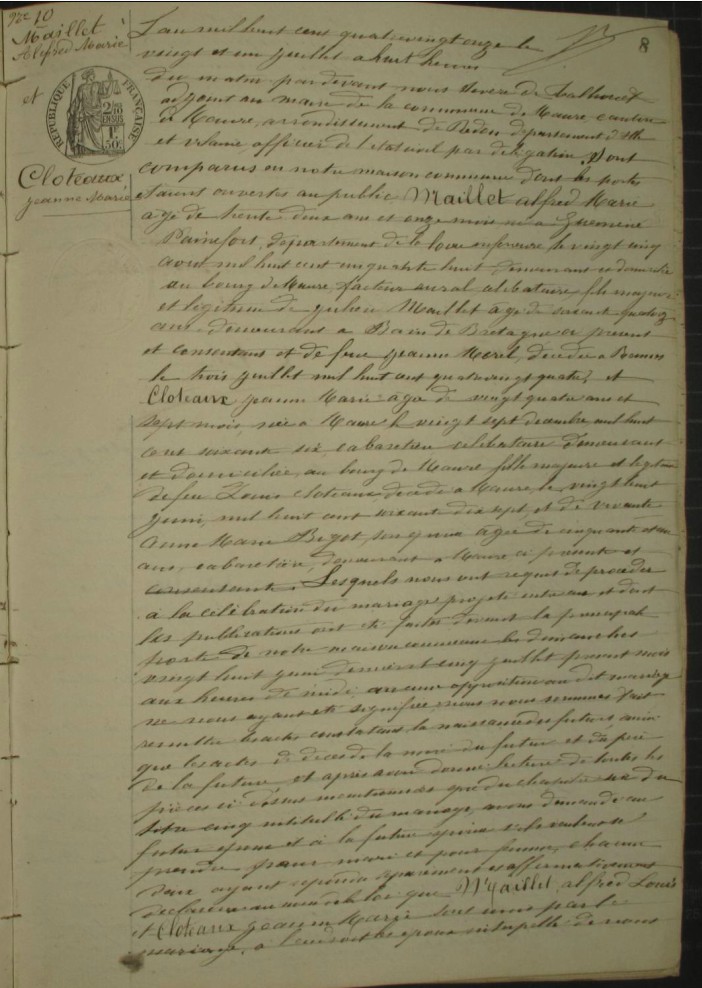 Nº 10
Maillet
Alfred Marie
et
RÉPUBLIQUE FRANÇAISE
Cloteaux
Jeanne Marie
8
L'an mil huit cent quatrevingt onze le
vingt et un juillet a huit heures
du matin par devant nous
adjoint au maire de la commune de Maure, canton
de Maure, arrondissement de Redon département d'Ille
et vilaine officier de l'etat civil par délégation, Sont
comparus en notre maison commune dont les portes
etaient ouvertes au public Maillet alfred Marie
agé de trente deux ans et onze mois né a Guemené
Painfort, département de la loire inferieure le vingt cinq
avril mil huit cent cinquante huit, demeurant et domicilié
au bourg de Maure, facteur rural celibataire fils majeur
et légitime de Julien Maillet agé de soixante quatorze
ans demeurant a Bain de Bretagne ci present
et consentant et de feue Jeanne Morel, decedée a Rennes
le trois juillet mil huit cent quatrevingt quatre, et
Cloteaux Jeanne Marie agée de vingt quatre ans et
sept mois, née a Maure le vingt sept decembre mil huit
cent soixante six cabaretière celibataire demeurant
et domiciliée, au bourg de Maure fille majeure et legitime
de feu Louis Cloteaux decedé a Maure, le vingt huit
juin, mil huit cent soixante dix sept, et de vivante
Anne Marie Bigot, agée de cinquante et un
ans, cabaretière, demeurant a Maure ci presente et
consentante. Lesquels nous ont requis de proceder
a la célébration du mariage projeté entre eux et dont
les publications ont été faites devant la principale
porte de notre maison commune les dimanches
vingt huit juin dernier et cinq juillet present mois
aux heures de midi, aucune opposition au dit mariage
ne nous ayant été signifiée nous nous sommes fait
remettre les actes constatant la naissance des futurs, ainsi
que les actes de deces de la mère du futur et du père
de la future et après avoir donné lecture de toutes les
pièces ci dessus mentionnées que du chapitre six du
titre cinq intitulé du mariage, avons demandé au
futur epoux et à la future epouse s'ils veulent se
prendre pour mari et pour femme, chacun
d'eux ayant repondu séparement et affirmativement
declarons au nom de la loi que Maillet, alfred Louis
et Cloteaux Jeanne Marie sont unis par le
mariage,